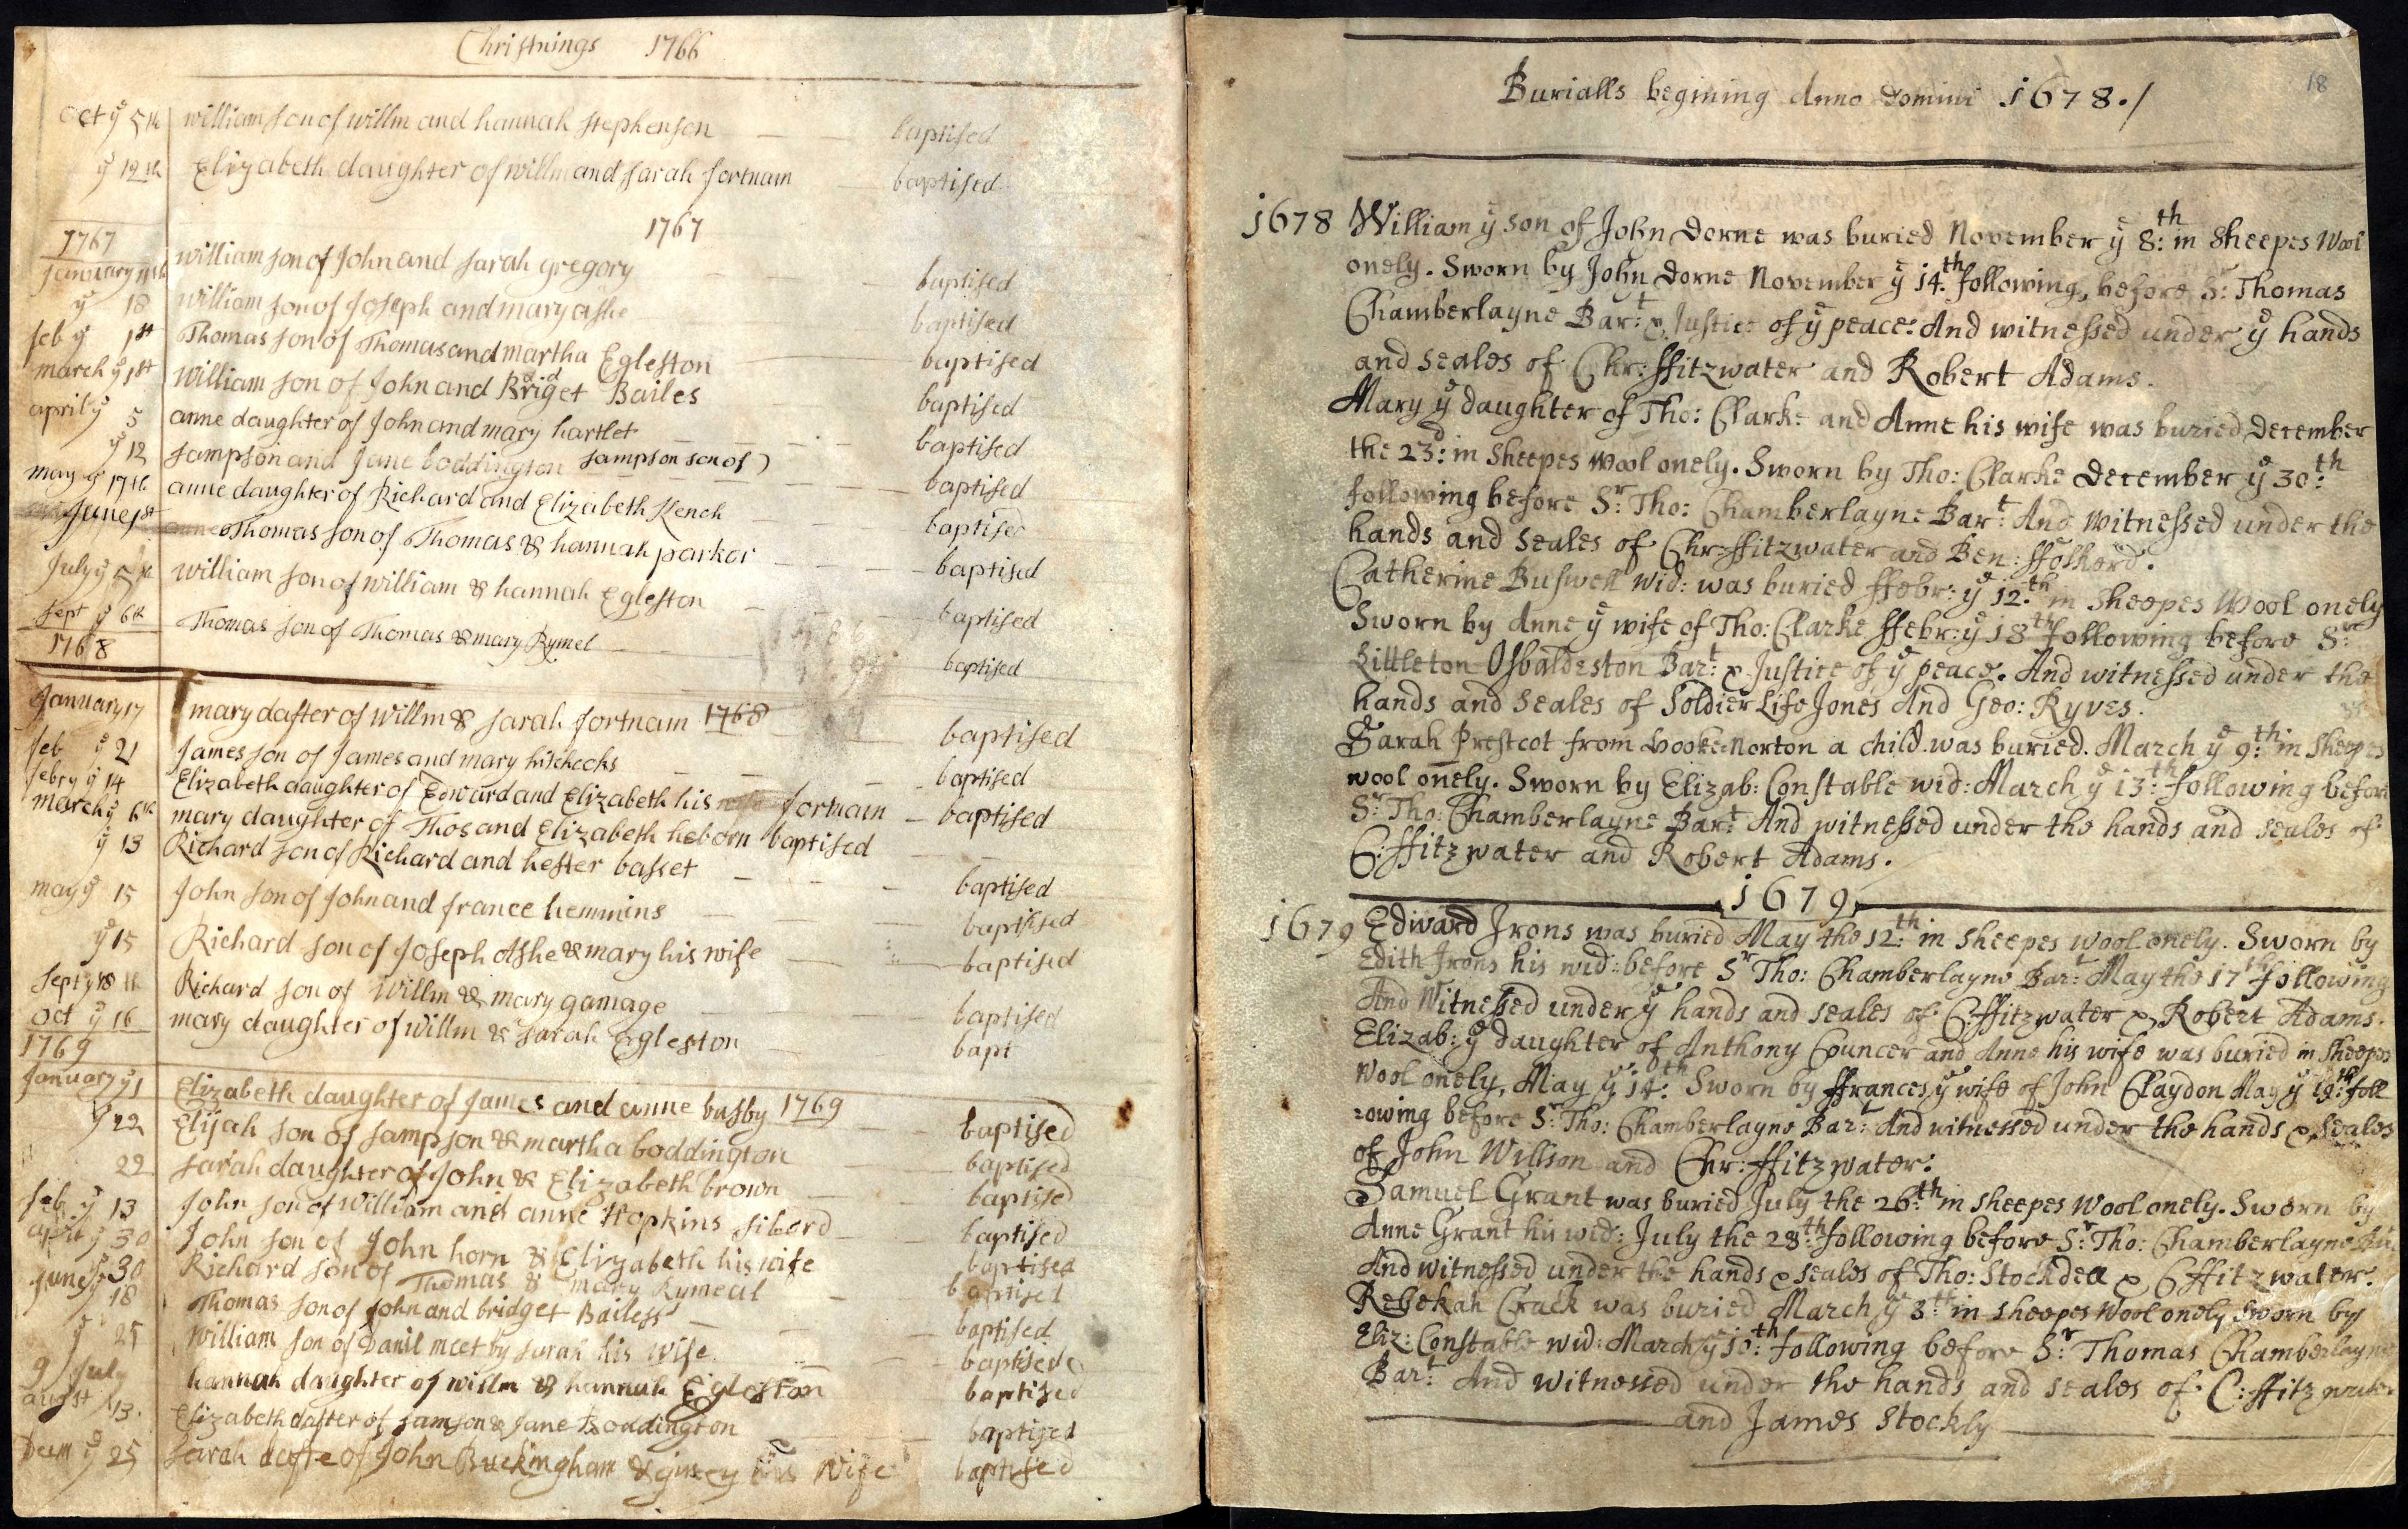 Christnings 1766
oct ye 5th william son of willm and hannah stephenson baptised
ye 12th Elizabeth daughter of willm and sarah fortnam baptised
1767
1767
January 11th william son of John and sarah gregory baptised
ye 18 william son of Joseph and mary ashe baptised
feb ye 1st Thomas son of Thomas and martha Egleston baptised
march ye 1st william son of John and Bridget Bailes baptised
april ye 5 anne daughter of John and mary hartlet baptised
ye 12 sampson and Jane boddington sampson son of) baptised
may ye 17th anne daughter of Richard and Elizabeth Kench baptised
June 1st Thomas son of Thomas & hannah parker baptised
July ye 5th william son of william & hannah Egleston baptised
sept ye 6th Thomas son of Thomas & mary Rymel baptised
1768
January 17 mary dafter of willm & sarah fortnam 1768 baptised
feb ye 21 James son of James and mary hitchcocks baptised
febry ye 14 Elizabeth daughter of Edward and Elizabeth his fortnam baptised
march ye 6th mary daughter of Thos and Elizabeth heborn baptised
ye 13 Richard son of Richard and hester basset baptised
may ye 15 John son of John and france hemmins baptised
ye 15 Richard son of Joseph Ashe & mary his wife baptised
sept ye 18th Richard son of Willm & mary gamage baptised
oct ye 16 mary daughter of willm & sarah Egleston bapt
1769
January ye 1 Elizabeth daughter of James and anne busby 1769 baptised
ye 22 Elijah son of sampson & martha boddington baptised
22 sarah daughter of John & Elizabeth brown baptised
feb ye 13 John son of William and anne Hopkins siberd baptised
april ye 30 John son of John horn & Elizabeth his wife baptised
ye 30 Richard son of Thomas & mary Rymeal baptised
June ye 18 Thomas son of John and bridget Bailess baptised
ye 25 William son of Danil meet by sarah his wife baptised
9 July hannah daughter of willm & hannah Egleston baptised
augst 13. Elizabeth dafter of samson & Jane Boddington baptised
Decm ye 25 sarah dafte of John Buckingham & his Wife baptised
18
Burialls begining Anno Domini 1678./
1678 William ye son of John Dorne was buried November ye 8:th in Sheepes Wool
onely. Sworn by John Dorne November ye 14.th following, before Sr: Thomas
Chamberlayne Bart: & Justice of ye peace: And witnessed under ye hands
and seales of Chr: ffitzwater and Robert Adams.
Mary ye daughter of Tho: Clarke and Anne his wife was buried December
the 23d: in Sheepes wool onely. Sworn by Tho: Clarke December ye 30:th
following before Sr: Tho: Chamberlayne Bart: And Witnessed under the
hands and Seales of Chr: ffitzwater and Ben: ffolkerd.
Catherine Buswell wid: was buried ffebr: ye 12.th in Sheepes Wool onely
Sworn by Anne ye wife of Tho: Clarke ffebr: ye 18th following before Sr:
Littleton Osbaldeston Bart: & Justice of ye peace. And witnessed under the
hands and Seales of Soldier Life Jones And Geo: Ryves.
Sarah Prestcot from Hooke=Norton a child was buried. March ye 9:th in Sheepes
wool onely. Sworn by Elizab: Constable wid: March ye 13:th following before
Sr: Tho: Chamberlayne Bart: And witnessed under the hands and seales of
C: ffitzwater and Robert Adams.
1679
1679 Edward Irons was buried May the 12:th in sheepes wool onely. Sworn by
Edith Irons his wid: before Sr Tho: Chamberlayne Bart: May the 17th following
And Witnessed under ye hands and seales of C: ffitzwater & Robert Adams.
Elizab: ye daughter of Anthony Councer and Anne his wife was buried in Sheepes
Wool onely, May ye 14:th Sworn by ffrances ye wife of John Claydon May ye 19:th foll
=owing before Sr: Tho: Chamberlayne Bart: And witnessed under the hands & seales
of John Willson and Chr: ffitzwater.
Samuel Grant was buried July the 26:th in sheepes Wool onely. Sworn by
Anne Grant his wid: July the 28:th following before Sr: Tho: Chamberlayne Bar
And witnessed under the hands & seales of Tho: Stockdea & C ffitzwater.
Rebekah Crack was buried March ye 8:th in sheepes Wool onely Sworn by
Eliz: Constable wid: March ye 10:th following before Sr: Thomas Chamberlayne
Bart: And witnessed under the hands and seales of C: ffitzwater
and James Stockly